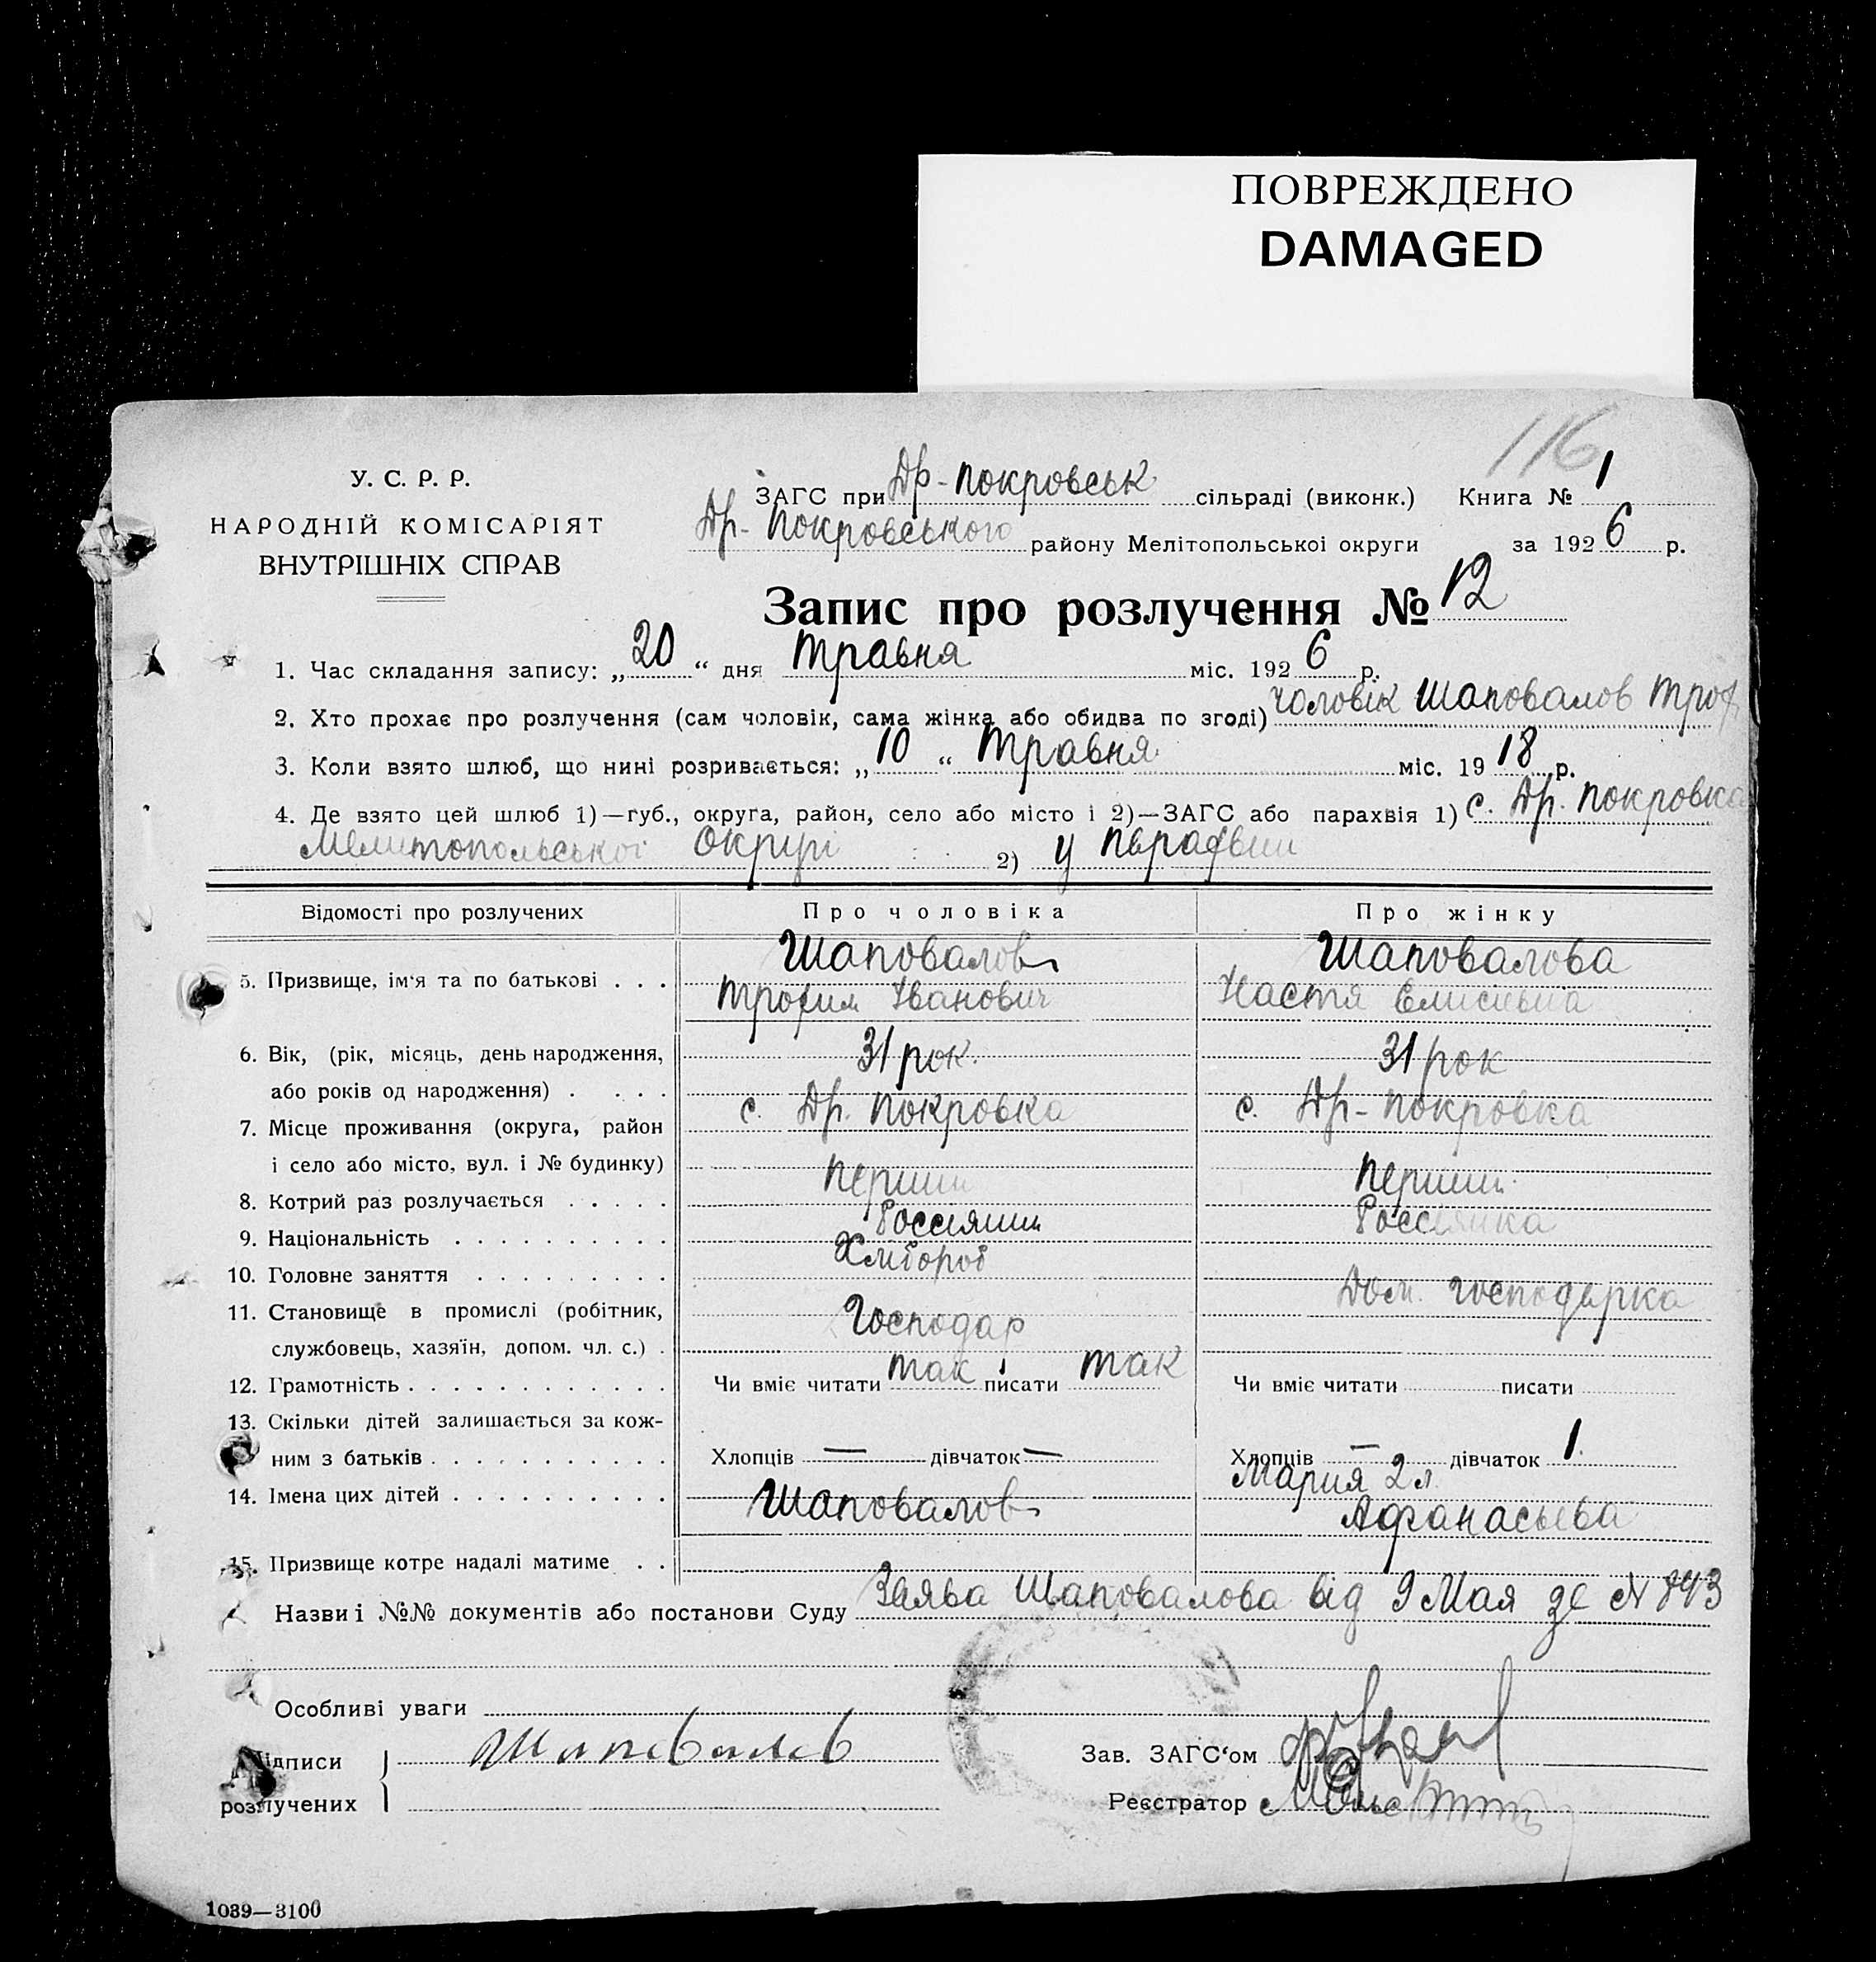 ПОВРЕЖДЕНО
DAMAGED
116
У. С. Р. Р.
НАРОДНІЙ КОМІСАРІЯТ
ВНУТРІШНІХ СПРАВ
ЗАГС при Др-покровськ сільраді (виконк.) Книга № 1
Др-Покровського району Мелітопольської округи за 1926 р.
Запис про розлучення № 12
1. Час складання запису: „20“ дня травня міс. 1926 р.
2. Хто прохає про розлучення (сам чоловік, сама жінка або обидва по згоді) чоловік Шаповалов Троф.
3. Коли взято шлюб, що нині розривається: „10“ травня міс. 1918 р.
4. Де взято цей шлюб 1)—губ., округа, район, село або місто і 2)—ЗАГС або парахвія 1) с. Др. покровка
Мелитопольської Округи 2) у парафвии
Відомості про розлучених Про чоловіка Про жінку
5. Призвище, ім'я та по батькові . . . Шаповалов Шаповалова
Трофим Іванович Настя
6. Вік, (рік, місяць, день народження, 31 рок. 31 рок
або років од народження) . . . .
7. Місце проживання (округа, район с. Др. покровка с. Др-покровка
і село або місто, вул. і № будинку)
8. Котрий раз розлучається . . . . . перший перший
9. Національність . . . . . . . . . . Россиянин Россиянка
10. Головне заняття . . . . . . . . . Хлибороб Дом. господарка
11. Становище в промислі (робітник, Господар
службовець, хазяїн, допом. чл. с.) .
12. Грамотність . . . . . . . . . . . . Чи вміє читати так писати так Чи вміє читати писати
13. Скільки дітей залишається за кож-
ним з батьків . . . . . . . . . . . Хлопців — дівчаток — Хлопців — дівчаток 1.
14. Імена цих дітей . . . . . . . . . . Мария 2 л.
15. Призвище котре надалі матиме . . Шаповалов Афанасьева
Назви і №№ документів або постанови Суду Заява Шаповалова від 9 Мая за N 843
Особливі уваги
Підписи Шаповалов Зав. ЗАГС‘ом
розлучених Реєстратор
1039—3100